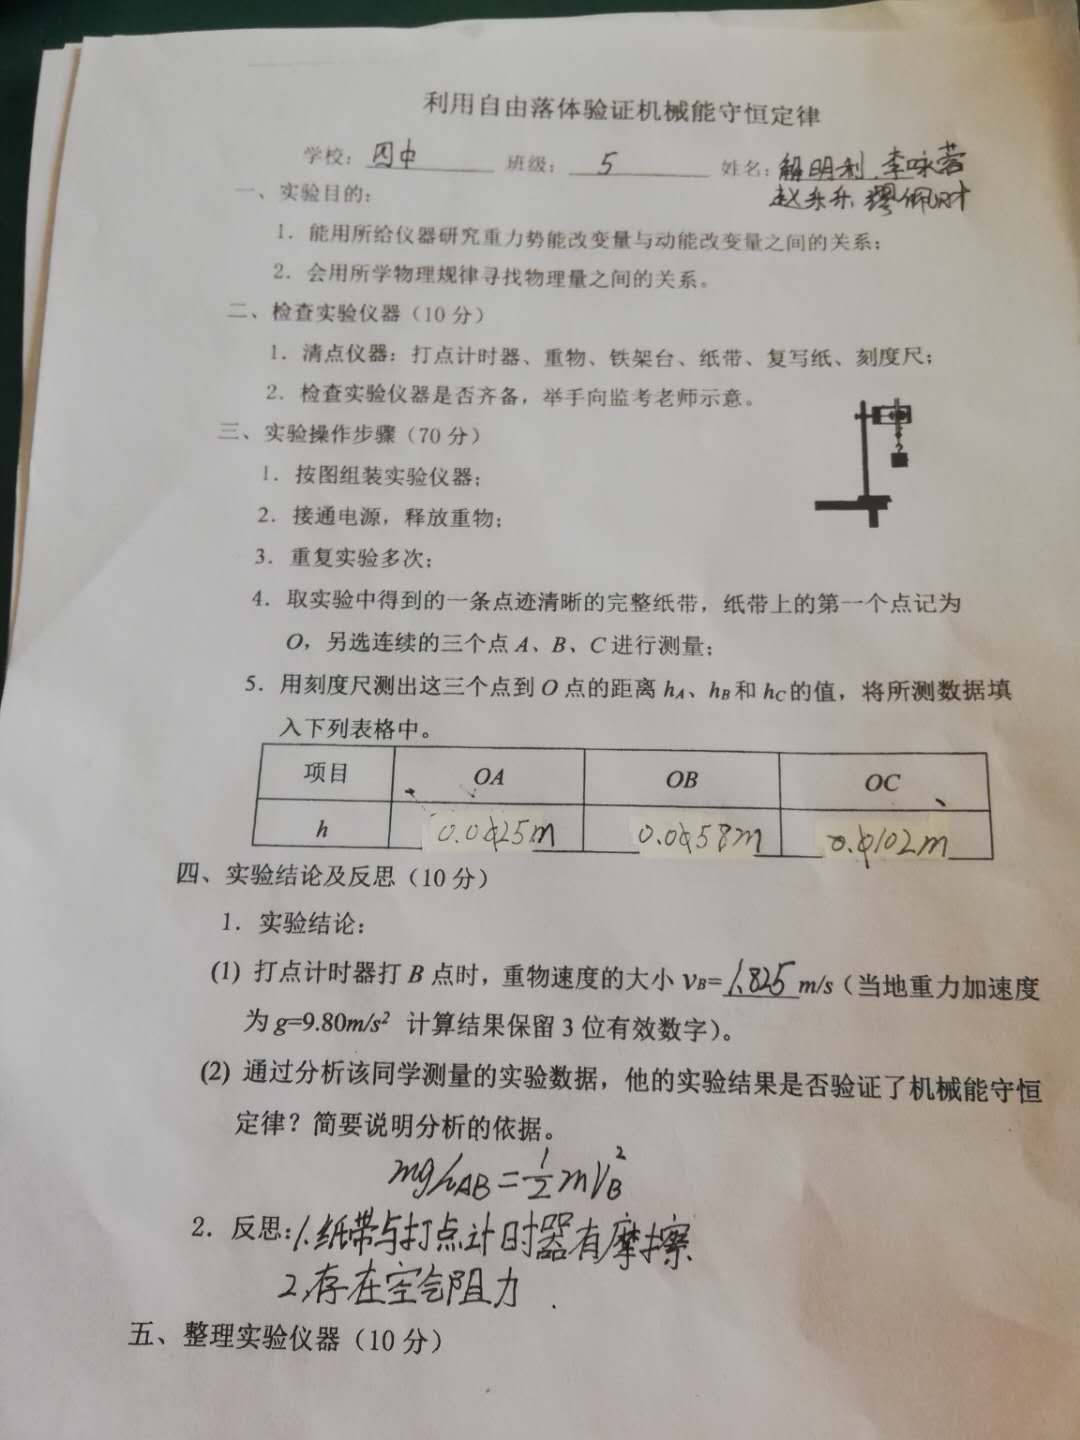 利用自由落体验证机械能守恒定律
学校：四中 班级：5 姓名：解明利、李咏蓉
赵乐乐 缪佩时
一、实验目的：
1．能用所给仪器研究重力势能改变量与动能改变量之间的关系；
2．会用所学物理规律寻找物理量之间的关系。
二、检查实验仪器（10 分）
1．清点仪器：打点计时器、重物、铁架台、纸带、复写纸、刻度尺；
2．检查实验仪器是否齐备，举手向监考老师示意。
三、实验操作步骤（70 分）
1．按图组装实验仪器；
2．接通电源，释放重物；
3．重复实验多次；
4．取实验中得到的一条点迹清晰的完整纸带，纸带上的第一个点记为
O，另选连续的三个点 A、B、C 进行测量；
5．用刻度尺测出这三个点到 O 点的距离 hA、hB 和 hC 的值，将所测数据填
入下列表格中。
项目 OA OB OC
h
四、实验结论及反思（10 分）
1．实验结论：
(1) 打点计时器打 B 点时，重物速度的大小 vB=1.825m/s（当地重力加速度
为 g=9.80m/s² 计算结果保留 3 位有效数字）。
(2) 通过分析该同学测量的实验数据，他的实验结果是否验证了机械能守恒
定律？简要说明分析的依据。
mghAB=½mVB²
2．反思：1.纸带与打点计时器有摩擦
2,存在空气阻力.
五、整理实验仪器（10 分）